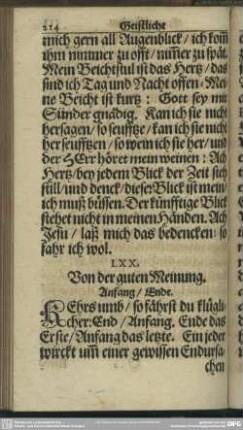 214 Geistliche
mich gern all Augenblick / ich kom̄
ihm nimmer zu offt / nim̄er zu spät.
Mein Beichtstul ist das Hertz / das
sind ich Tag und Nacht offen. Mei-
ne Beicht ist kurtz : Gott sey mir
Sünder gnädig. Kan ich sie nicht
hersagen / so seufftze / kan ich sie nicht
her seufftzen / so wein ich sie her / und
der HErr höret mein weinen : Ach
Hertz / bey jedem Blick der Zeit sich
still / und denck / dieser Blick ist mein /
ich muß büssen. Der künfftige Blick
stehet nicht in meinen Händen. Ach
Jesu / laß mich das bedencken : so
fahr ich wol.
LXX.
Von der guten Meinung.
Anfang / Ende.
KEhrs umb / so fährst du klügli-
cher : End / Anfang. Ende das
Erste / Anfang das letzte. Ein jeder
wirckt um̄ einer gewissen Endursa-
chen